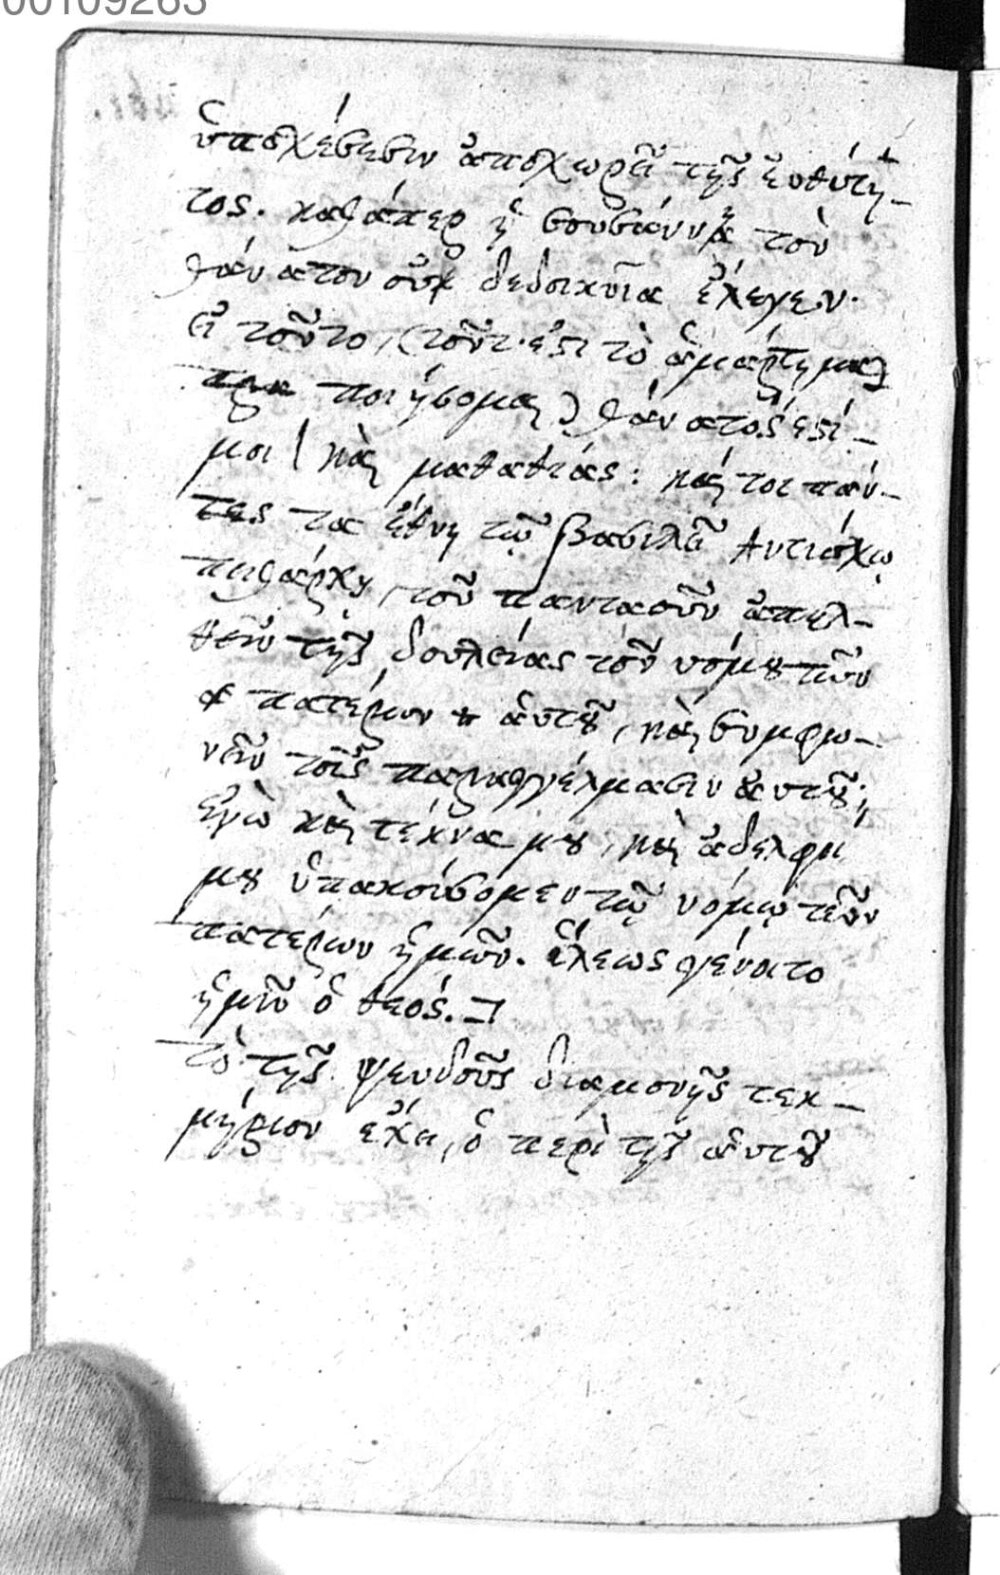 00109263
ὑποσχέσεσιν ἀποχωρεῖ τῆς εὐθύτη-
τος. καθάπερ ἡ σουσάννα τὸν
θάνατον οὐκ δεδοικυῖα ἔλεγεν.
εἰ τοῦτο, (τοῦτ' ἐστι τὸ ἁμάρτημα)
ποιήσομαι) θάνατός ἐστί
μοι( καὶ μαθαθίας: καί τοι πάν-
τες τα ἔθνη τῷ βασιλεῖ Ἀντιόχῳ
πειθάρχῃ, τοῦ παντασοῦν ἀπελ-
θεῖν τῆς δουλείας τοῦ νόμου τῶν
πατέρων αὐτοῦ, καὶ συμφω-
νεῖν τοῖς παραγγέλμασιν αὐτοῦ·
ἐγὼ καὶ τέκνα μου, καὶ ἀδελφοί
μου ὑπακούσομεν τῷ νόμῳ τῶν
πατέρων ἡμῶν. ἵλεως γένοιτο
ἡμῖν ὁ θεός.
τὸ τῆς ψευδοῦς διαμονῆς τεκ-
μήριον ἔχει, ὁ περὶ τῆς αὐτοῦ